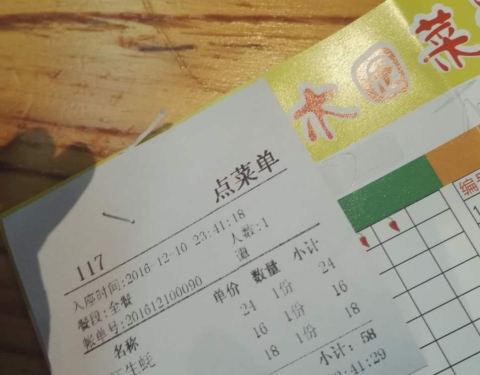 木国菜
点菜单
117
入座时间:2016-12-10 23:41:18
餐段:全餐 人数:1
账单号:201612100090 道
名称 单价 数量 小计
24 1份 24
生蚝 16 1份 16
18 1份 18
小计: 58
:41:29
编